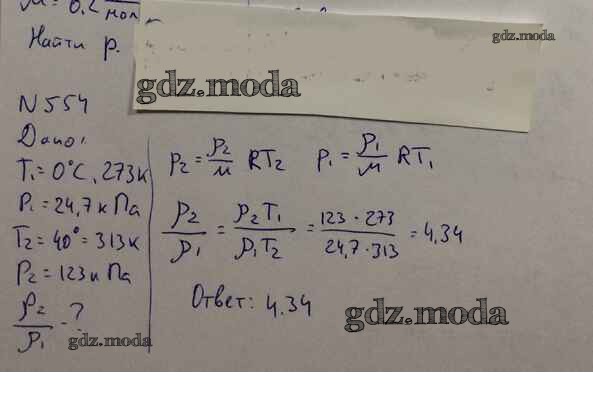 M = 0,2 / мол
Найти p.
gdz.moda
gdz.moda
N 554
Дано:
T₁ = 0°C, 273к
P₁ = 24,7 кПа
T₂ = 40° = 313к
P₂ = 123 кПа
ρ₂/ρ₁ - ?
gdz.moda
p₂ = ρ₂/м RT₂ p₁ = ρ₁/м RT₁
ρ₂/ρ₁ = p₂T₁/p₁T₂ = 123 · 273/24,7 · 313 = 4,34
Ответ: 4.34
gdz.moda